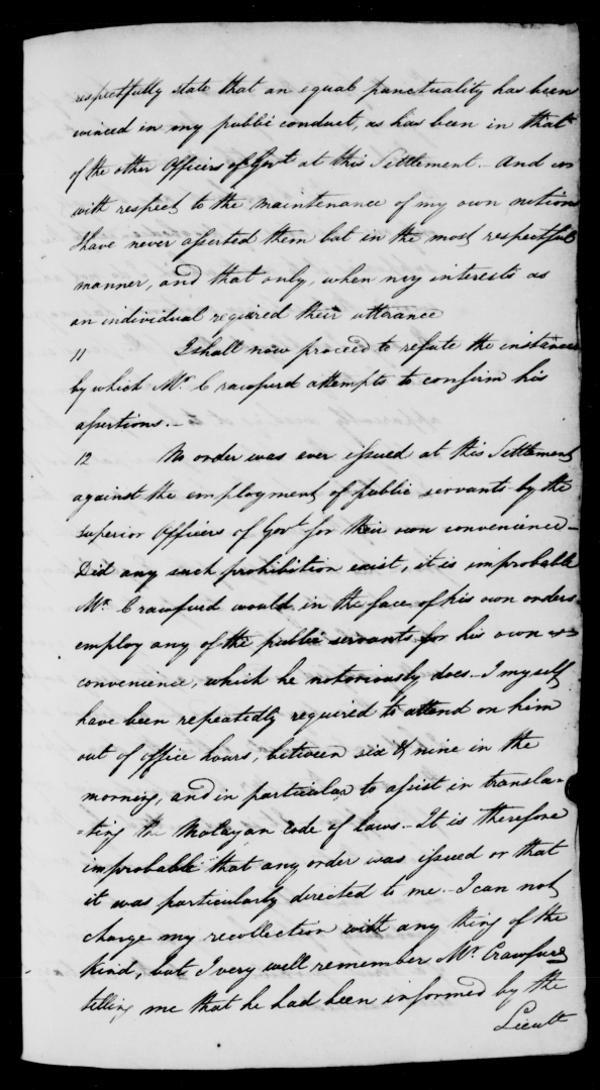 respectfully state that an equal punctuality has been
evinced in my public conduct, as has been in that
of the other Officers of Govt at this Settlement. And
with respect to the maintenance of my own notions
I have never asserted them but in the most respectful
manner, and that only, when my interests as
an individual required their utterance
11 I shall now proceed to refute the instances
by which Mr. Crawfurd attempts to confirm his
assertions._
12 No order was ever issued at this Settlement
against the employment of public servants by the
superior Officers of Govt for their own convenience_
Did any such prohibition exist, it is improbable
Mr. Crawfurd would in the face of his own orders
employ any of the public servants for his own
convenience, which he notoriously does._ I myself
have been repeatedly required to attend on him
out of office hours, between six & nine in the
morning, and in particular to assist in transla=
=ting the Malayan Code of laws._ It is therefore
improbable that any order was issued or that
it was particularly directed to me._ I can not
charge my recollection with any thing of the
kind, but I very well remember Mr. Crawfurd
telling me that he had been informed by the
Lieutt